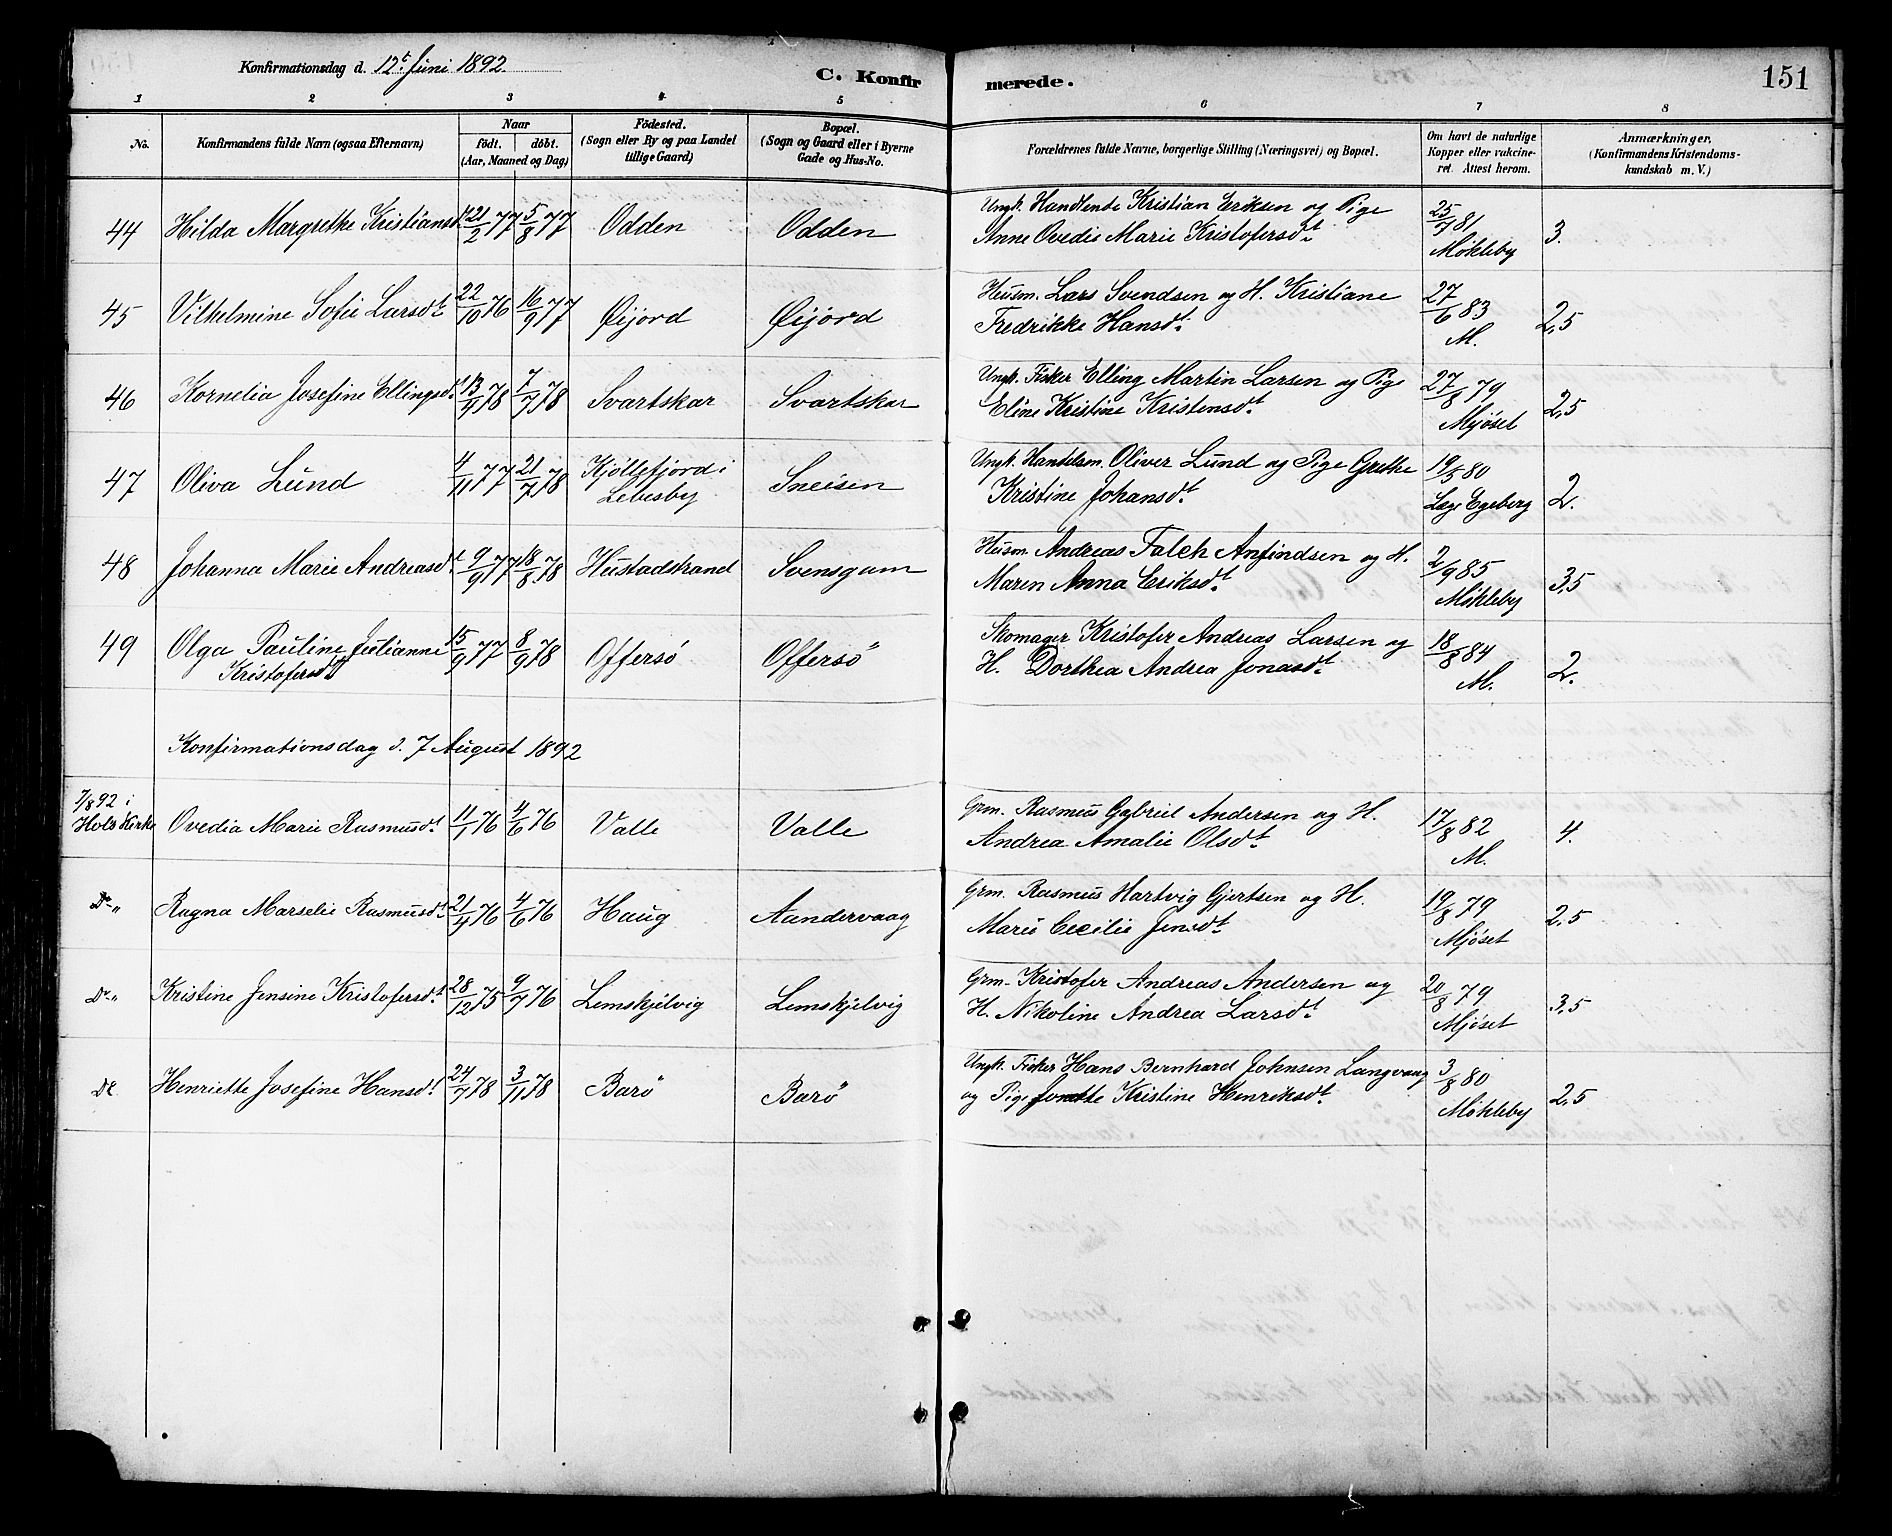 Konfirmationsdag d. 12t Juni 1892
C. Konfirmerede.
151
1 2 3 4 5 6 7 8
No.
Konfirmandens fulde Navn (ogsaa Efternavn)
Naar
födt. döbt.
(Aar, Maaned og Dag)
Födested.
(Sogn eller By og paa Landet
tillige Gaard)
Bopæl.
(Sogn og Gaard eller i Byerne
Gade og Hus-No.
Forældrenes fulde Navne, borgerlige Stilling (Næringsvei) og Bopæl.
Om havt de naturlige
Kopper eller vakcine-
ret. Attest herom.
Anmærkninger,
(Konfirmandens Kristendoms-
kundskab m. V.)
44 Hilda Margrethe Kristiansdt 21/2 77 5/8 77 Odden Odden Ungk. Handlende Kristian Eriksen og Pige
Anne Ovedie Marie Kristofersdt 25/7 81 Møkleby 3.
45 Vilhelmine Sofie Larsdt 22/10 76 16/9 77 Øijord Øijord Husm. Lars Svendsen og H. Kristiane
Fredrikke Hansdt 27/6 83 M. 2,5
46 Kornelia Josefine Ellingsdt 13/9 78 7/7 78 Svartskar Svartskar Ungk. Fisker Elling Martin Larsen og Pige
Eline Kristine Kristensdt 27/8 79 Mjöset 2,5
47 Oliva Lund 4/11 77 21/7 78 Kjöllefjord i
Lebesby Sneisen Ungk. Handelsm. Oliver Lund og Pige Grethe
Kristine Johansdt 19/5 80 Læge Egeberg 2.
48 Johanna Marie Andreasdt 9/9 77 18/8 78 Hustadstrand Svensgam Husm. Andreas Falch Anfindsen og H.
Maren Anna Eriksdt 2/9 85 Møkleby 3,5
49 Olga Pauline Julianne
Kristofersdt 15/9 77 8/9 78 Offersö Offersö Skomager Kristofer Andreas Larsen og
H. Dorthea Andrea Jonasdt 18/8 84 M. 2.
Konfirmationsdag d. 7 August 1892
7/8 92 i
Hols Kirke Ovedia Marie Rasmusdt 11/1 76 4/6 76 Valle Valle Grm. Rasmus Gabriel Andersen og H.
Andrea Amalie Olsdt 17/8 82 M. 4.
Do " Ragna Marselie Rasmusdt 21/4 76 4/6 76 Haug Aandervaag Grm. Rasmus Hartvig Gjertsen og H.
Marie Cecilie Jensdt 19/8 79 Mjöset 2,5
Do " Kristine Jensine Kristofersdt 28/12 75 9/7 76 Lemskjelvig Lemskjelvig Grm. Kristofer Andreas Andersen og
H. Nikoline Andrea Larsdt 20/8 79 Mjöset 3,5
Do Henriette Josefine Hansdt 24/7 78 3/11 78 Barö Barö Ungk. Fisker Hans Bernhard Johnsen Langvaag
og Pige Jonette Kristine Henriksdt 3/8 80 Møkleby 2,5